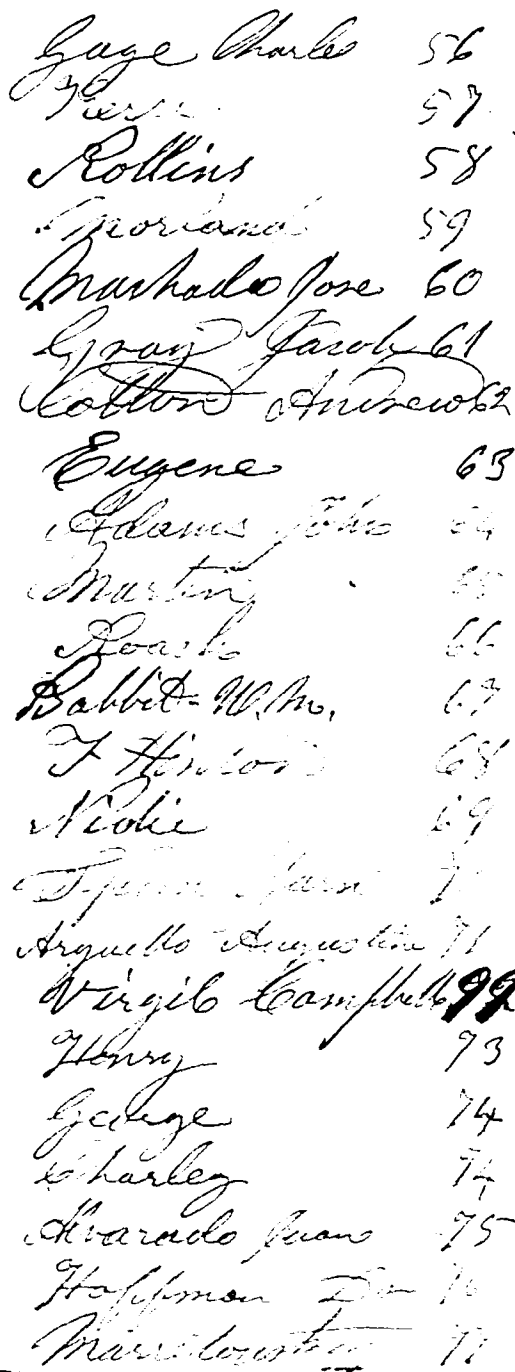 Gage Charles 56
Pierre 57
Rollins 58
Morland 59
Machado Jose 60
Gray Jacob 61
Cotton Andrew 62
Eugene 63
Adams John 64
Martin 65
Roach 66
Babbit W.m. 67
F Hinton 68
Nidie 69
Arguello Augustine 71
Virgil Campbell 72
Henry 73
George 74
Charley 74
Alvarado Juan 75
Hoffman 76
77